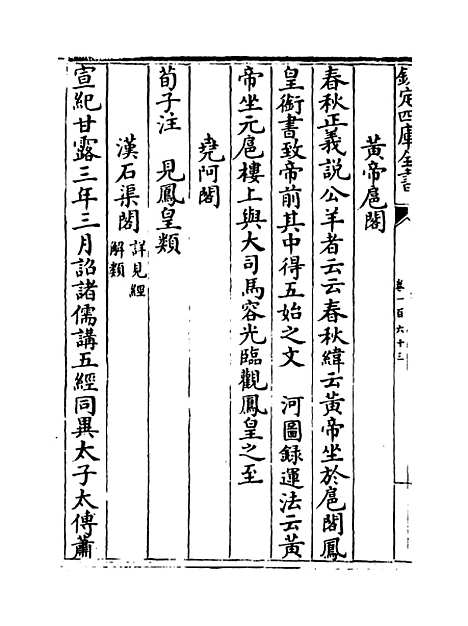 欽定四庫全書
卷一百六十三
黃帝扈閣
春秋正義說公羊者云云春秋緯云黃帝坐於扈閣鳳
皇銜書致帝前其中得五始之文　河圖録運法云黃
帝坐元扈樓上與大司馬容光臨觀鳳皇之至
堯阿閣
荀子注　見鳳皇類
漢石渠閣詳見經
解類
宣紀甘露三年三月詔諸儒講五經同異太子太傅蕭